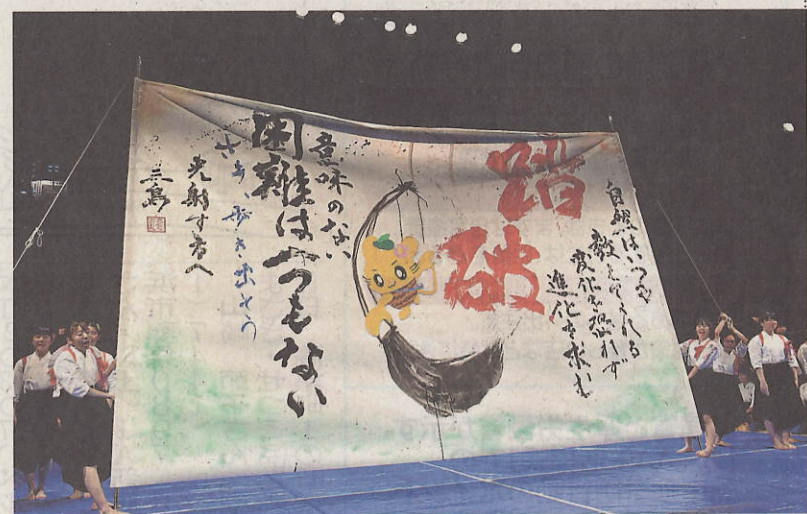 踏破
自然はいつも
教えてくれる
変化を恐れず
進化を求む
意味のない
困難は一つもない
さあ、歩き出そう
光射す方へ
三島